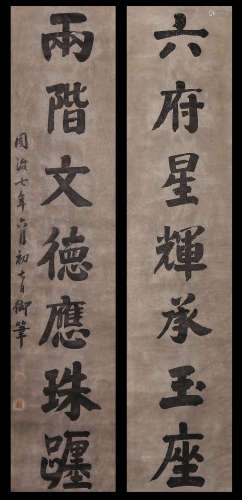 六府星輝承玉座
兩階文德應珠躔
同治七年六月初十日御筆